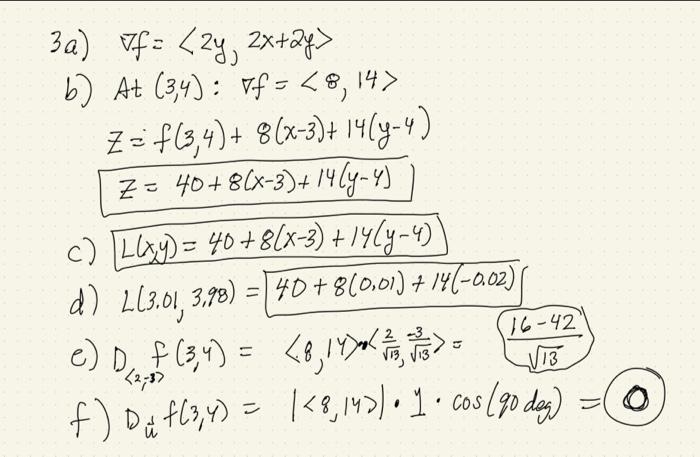 3a) ∇f = <2y, 2x+2y>
b) At (3,4): ∇f = <8, 14>
z = f(3,4) + 8(x-3) + 14(y-4)
z = 40 + 8(x-3) + 14(y-4)
c) L(x,y) = 40 + 8(x-3) + 14(y-4)
d) L(3.01, 3.98) = 40 + 8(0.01) + 14(-0.02)
e) D_<2,-3> f(3,4) = <8,14> • <2/√13, -3/√13> = (16-42)/√13
f) D_u⃗ f(3,4) = |<8,14>| • 1 • cos(90 deg) = 0